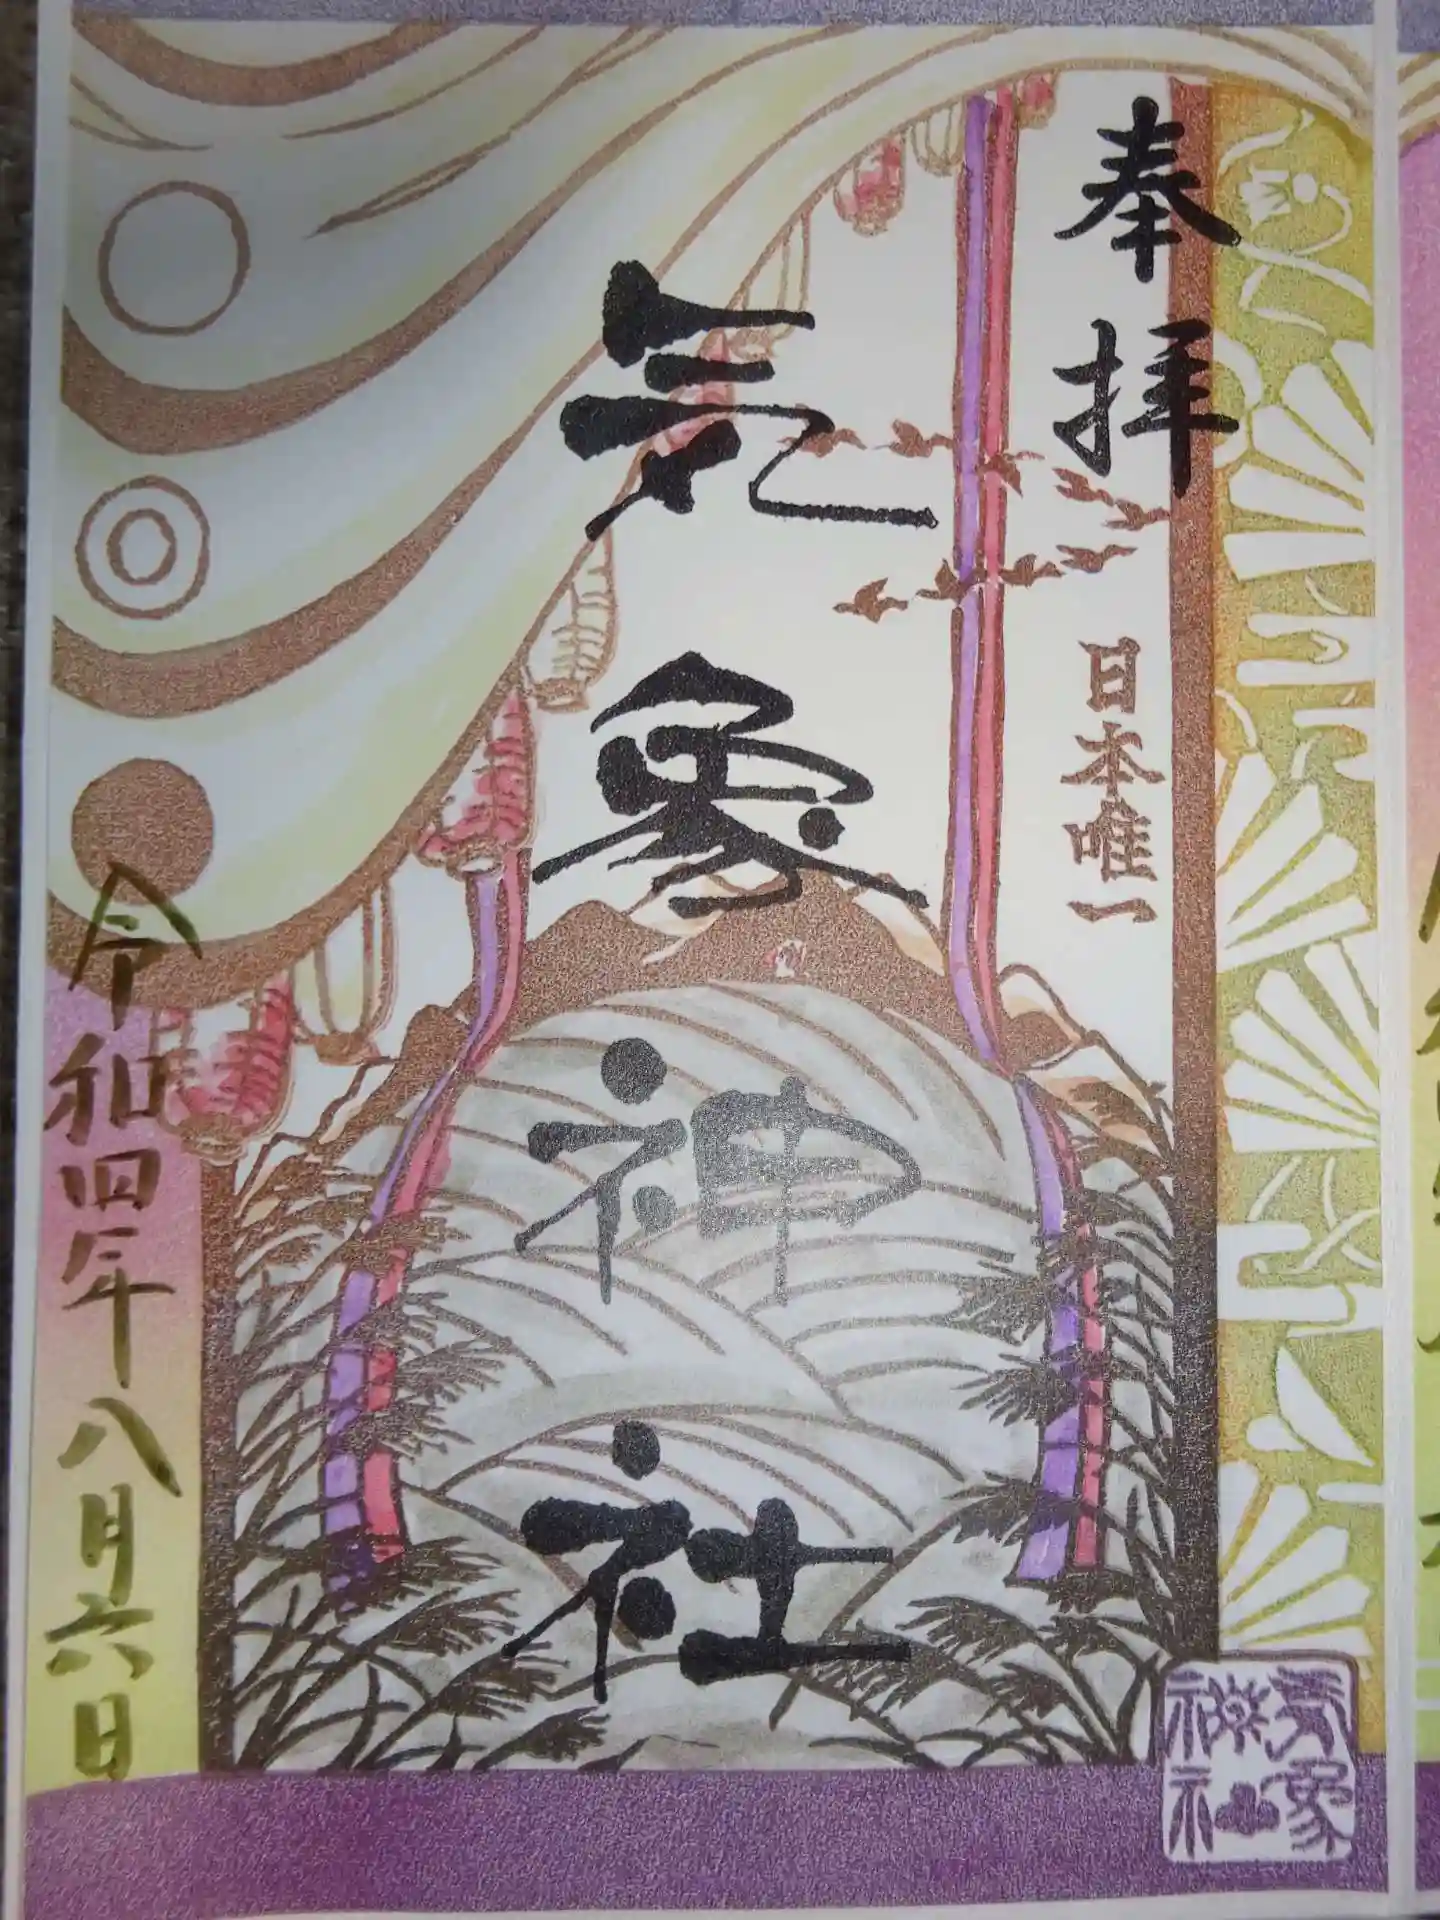 奉拝
日本唯一
気象神社
令和四年八月六日
気象
神社